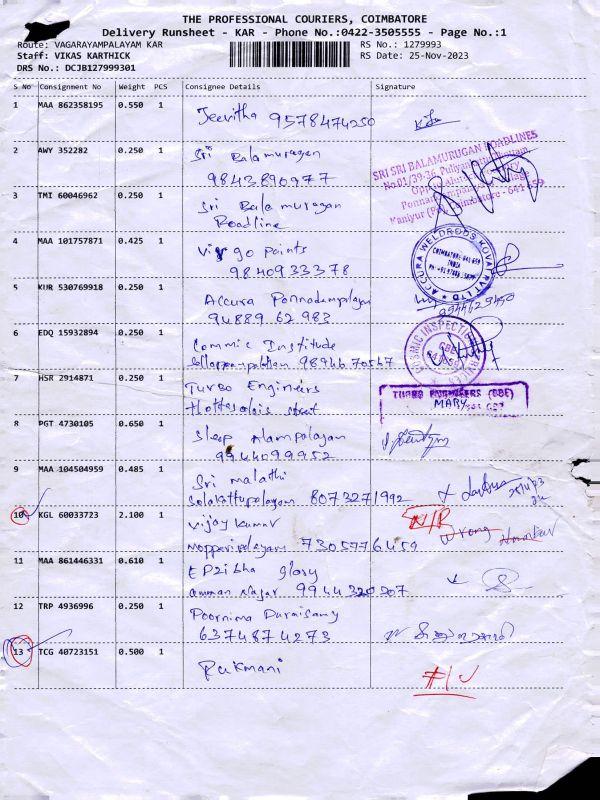 THE PROFESSIONAL COURIERS, COIMBATORE
Delivery Runsheet - KAR - Phone No.:0422-3505555 - Page No.:1
Route: VAGARAYAMPALAYAM KAR
RS No.: 1279993
Staff: VIKAS KARTHICK
RS Date: 25-Nov-2023
DRS No.: DCJB127999301
S No Consignment No Weight PCS Consignee Details Signature
1 MAA 862358195 0.550 1
Jeevitha 9578474250
2 AWY 352282 0.250 1
Sri Balamurugan
9843890977
SRI SRI BALAMURUGAN ROADLINES
3 TMI 60046962 0.250 1
Sri Balamurugan
Roadline
4 MAA 101757871 0.425 1
Virgo Points
9840933378
ACCURA WELDRODS KOVAI PVT LTD
COIMBATORE-641 659
INDIA
5 KUR 530769918 0.250 1
Accura Ponnadampalayam
94889 62 983
9944629450
6 EDQ 15932894 0.250 1
Commic Institude
9894670547
COSMIC INSPECTION
7 HSR 2914871 0.250 1
Turbo Engineers
street
TURBO ENGINEERS (CBE)
MARY
8 PGT 4730105 0.650 1
Sleep Alampalayam
9944099952
9 MAA 104504959 0.485 1
Sri malathi
Solakattupalayam 8073271992
25/11/23
10 KGL 60033723 2.100 1
Vijay Kumar
7305776459
N/R
Wrong Number
11 MAA 861446331 0.610 1
EPzibha glory
Amman Nagar 9944320207
12 TRP 4936996 0.250 1
Poornima Duraisamy
6374874273
13 TCG 40723151 0.500 1
Rukmani